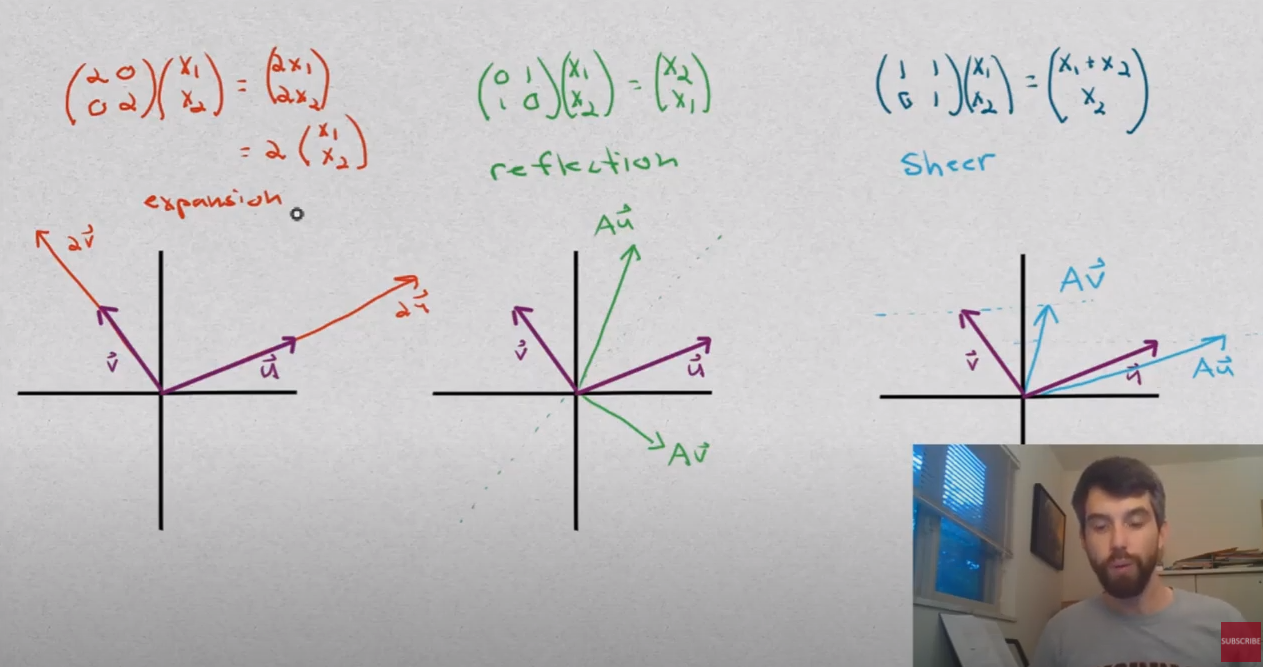 (2 0
0 2)(x₁
x₂) = (2x₁
2x₂)
= 2(x₁
x₂)
expansion
2v⃗
v⃗
u⃗
2u⃗
(0 1
1 0)(x₁
x₂) = (x₂
x₁)
reflection
Au⃗
v⃗
u⃗
Av⃗
(1 1
0 1)(x₁
x₂) = (x₁ + x₂
x₂)
Sheer
Av⃗
v⃗
u⃗
Au⃗
SUBSCRIBE